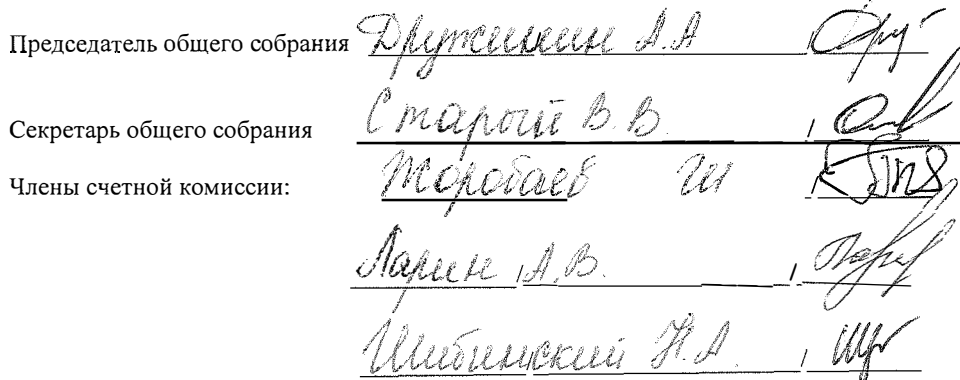 Председатель общего собрания Дружинин А.А
Секретарь общего собрания Старый В.В.
Члены счетной комиссии: Жоробаев
Ларин А.В.
Шибинский Н.А.